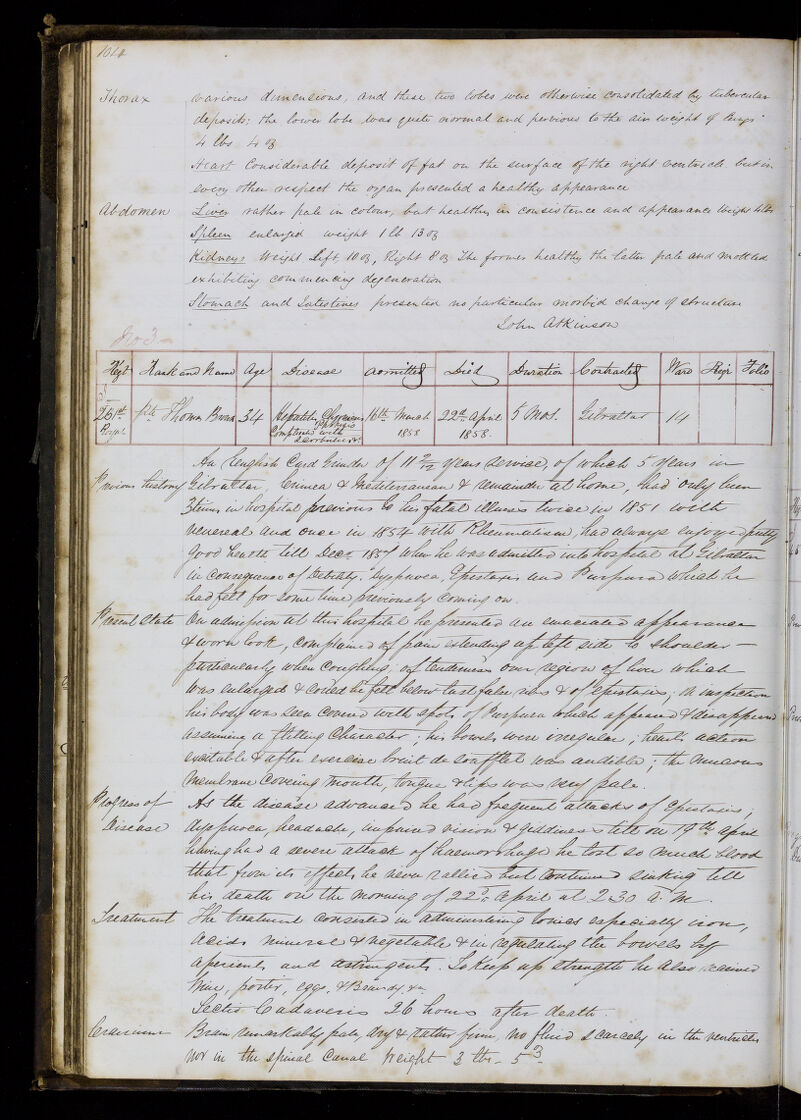 1014
Thorax various dimensions, and these two lobes were otherwise consolidated by tubercular
deposits; the lower lobe was quite normal and pervious to the air weight of lungs
4 lbs. 4 oz
Heart Considerable deposit of fat on the surface of the right ventricle but in
every other respect the organ presented a healthy appearance
Abdomen Liver rather pale in colour, but healthy in consistence and appearance Weight lbs
Spleen enlarged weight 1 lb 13 oz
Kidneys Weight Left, 10 oz, Right 8 oz The former healthy the latter pale and mottled
exhibiting commencing degeneration
Stomach and Intestines presented no particular morbid change of structure
John Atkinson
No 3
Regt Rank and Name Age Disease Admitted Died Duration Contracted Ward Regr Folio
Pte Thomas Brown 34 Hepatitis Chronicus 16th March 22nd April 5 Mos. Gibraltar 14
Royal Complicated with 1858 1858.
An English Card Grinder of 11 9/12 years service, of which 5 years in
Previous history Gibraltar, Crimea & Mediterranean & remainder at home, had only been
3 times in hospital previous to his fatal illness twice in 1851 with
venereal and once in 1854 with Rheumatism, had always enjoyed pretty
good health till Decr 1857 when he was admitted into hospital at Gibraltar
in consequence of Debility. Dyspnoea, Epistaxis and Purpura which he
had felt for some time previously coming on.
Present State On admission at this hospital he presented an emaciated appearance
& worn look, complained of pain extending up left side to shoulder –
particularly when coughing, of tenderness over region of liver which
was enlarged & could be felt below last false ribs & of epistaxis; on inspection
his body was seen covered with spots of Purpura which appeared & disappeared
assuming a flitting character; his bowels were irregular; heart's action
excitable & after exercise bruit de soufflet was audible; the mucous
membrane covering mouth, tongue & lips was very pale.
Progress of As the disease advanced he had frequent attacks of epistaxis,
Disease dyspnoea, headache, impaired vision & giddiness till on 19th April
having had a severe attack of haemorrhage he lost so much blood
that from its effects he never rallied but continued sinking till
his death on the morning of 22d April at 2.30 a.m.
Treatment The treatment consisted in administering tonics especially iron,
acids mineral & vegetable & in regulating the bowels by
aperients and astringents. To keep up strength he also received
Wine, porter, eggs, & Brandy &c
Sectio Cadaveris 26 hours after death.
Cranium Brain remarkably pale, dry & rather firm, no fluid scarcely in the ventricles
nor in the spinal canal Weight 3 lbs – 5